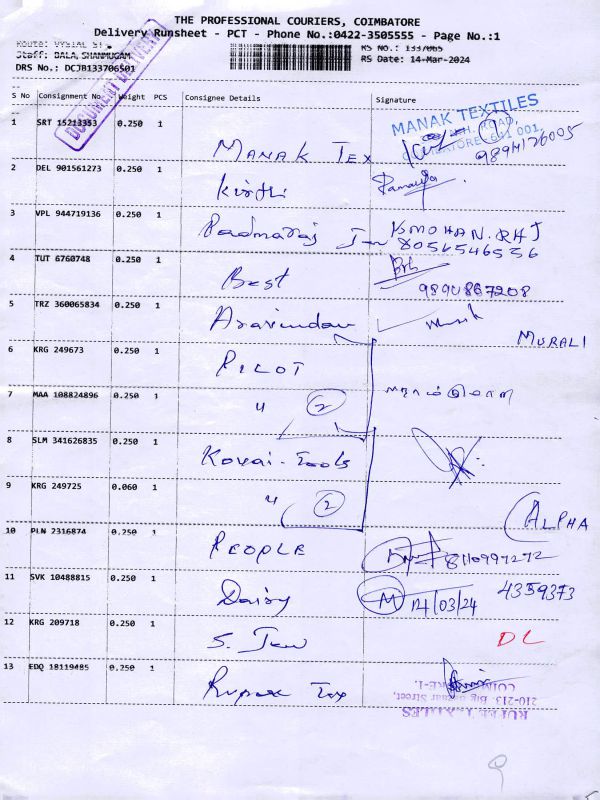 THE PROFESSIONAL COURIERS, COIMBATORE
Delivery Runsheet - PCT - Phone No.:0422-3505555 - Page No.:1
Route: VYSIAL ST
Staff: BALA, SHANMUGAM
RS No.: 1337065
DRS No.: DCJB133706501
RS Date: 14-Mar-2024
DOCUMENT DELIVERY
S No Consignment No. Weight PCS Consignee Details Signature
MANAK TEXTILES
1 SRT 15213353 0.250 1 MANAK TEX
641 001.
9894126005
2 DEL 901561273 0.250 1 Kirthi
3 VPL 944719136 0.250 1 Padmaraj Jew K.MOHAN.RAJ
8056546536
4 TUT 6760748 0.250 1 Best
9890867208
5 TRZ 360065834 0.250 1 Aravindan
MURALI
6 KRG 249673 0.250 1 PILOT
7 MAA 108824896 0.250 1 " 2
8 SLM 341626835 0.250 1 Kovai-Tools
9 KRG 249725 0.060 1 " 2
ALPHA
10 PLN 2316874 0.250 1 PEOPLE 8110997272
11 SVK 10488815 0.250 1 Daisy M 14/03/24 4359373
12 KRG 209718 0.250 1 S. Jew DL
13 EDQ 18119485 0.250 1 Rupex Tex
210-213, Big Bazaar Street,
9